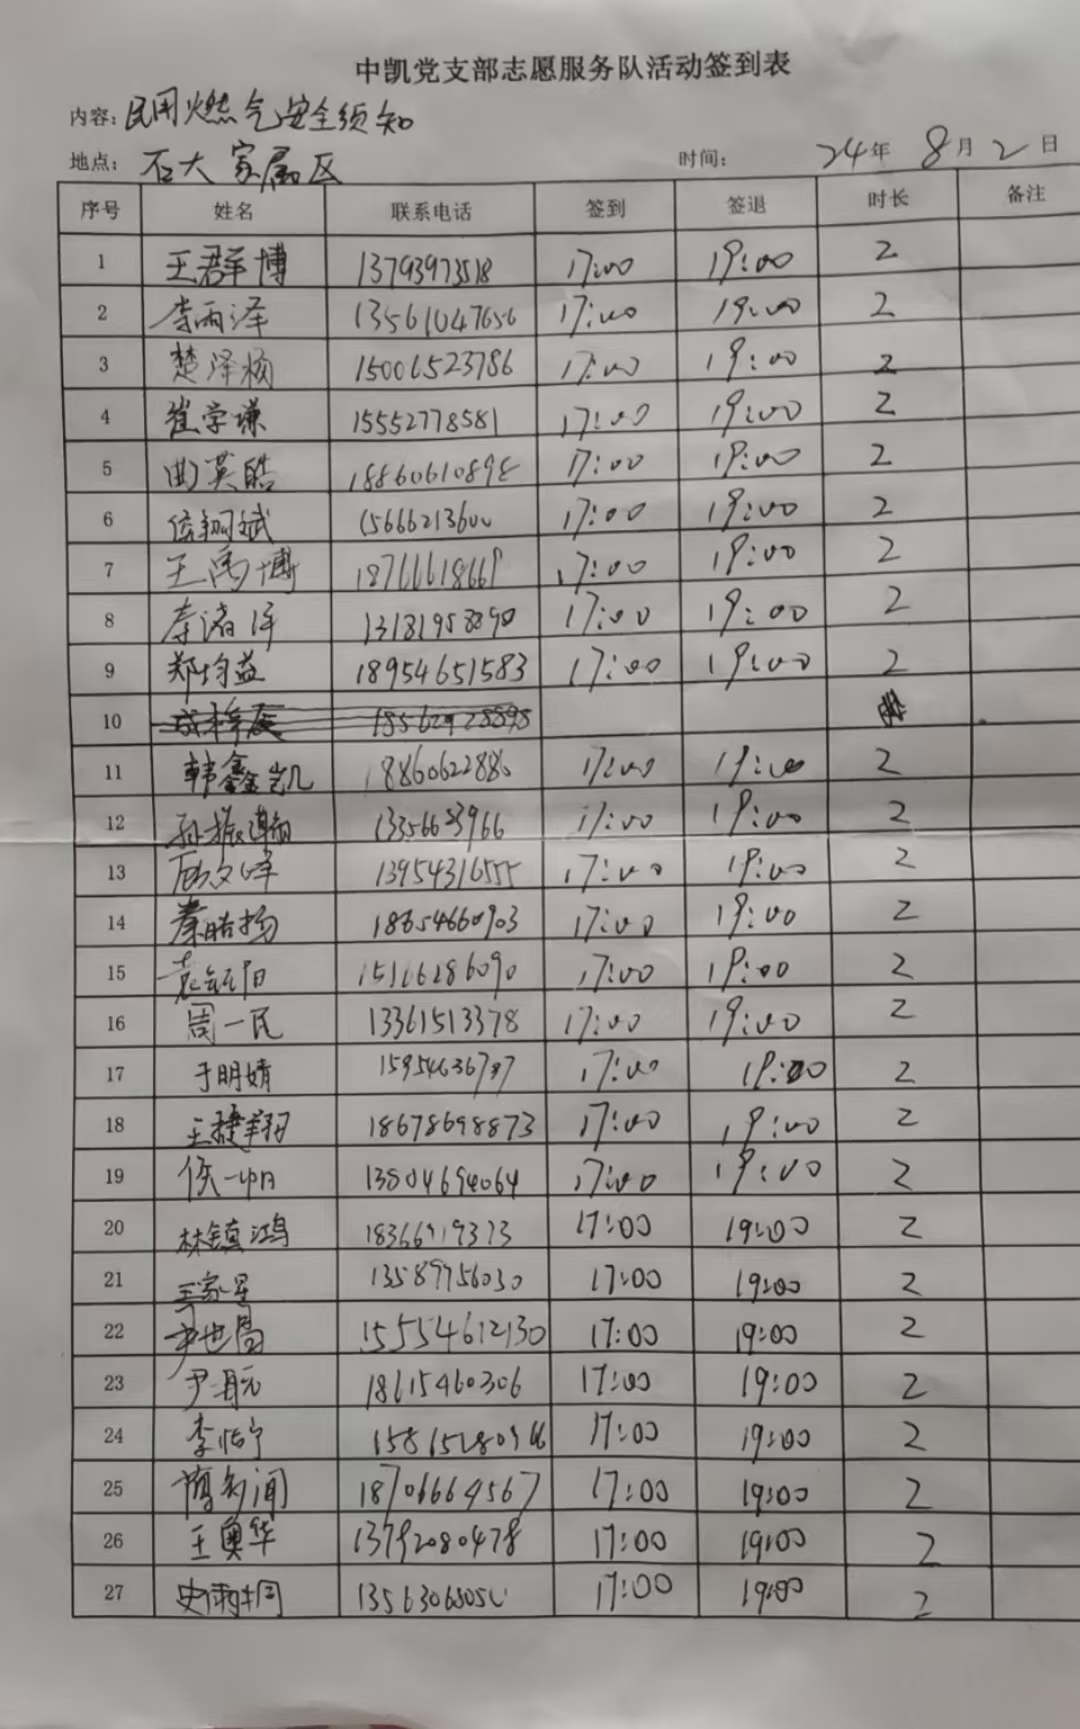 中凯党支部志愿服务队活动签到表
内容：民用燃气安全须知
地点：石大家属区 时间： 24年 8月2日
序号 姓名 联系电话 签到 签退 时长 备注
1 王群博 13793973518 17:00 19:00 2
2 李雨泽 13561047656 17:00 19:00 2
3 楚泽杨 15006523786 17:00 19:00 2
4 崔学谦 15552778581 17:00 19:00 2
5 曲英皓 18860610898 17:00 19:00 2
6 侯翔斌 15666213600 17:00 19:00 2
7 王禹博 18766618669 17:00 19:00 2
8 李诸泽 13181958890 17:00 19:00 2
9 郑均益 18954651583 17:00 19:00 2
10
11 韩鑫凯 18860622886 17:00 19:00 2
12 孙振瀚 13356623966 17:00 19:00 2
13 文峰 13954316555 17:00 19:00 2
14 秦皓扬 18654660903 17:00 19:00 2
15 袁 阳 15166286090 17:00 19:00 2
16 周一民 13361513378 17:00 19:00 2
17 于明婧 15954636797 17:00 19:00 2
18 王捷翔 18678698873 17:00 19:00 2
19 侯一 13804694064 17:00 19:00 2
20 林镇鸿 18366919373 17:00 19:00 2
21 王家星 13589756030 17:00 19:00 2
22 尹世昌 15554612130 17:00 19:00 2
23 尹 元 18615460306 17:00 19:00 2
24 李临宁 17:00 19:00 2
25 闻 18706664567 17:00 19:00 2
26 王奥华 13792080478 17:00 19:00 2
27 史雨桐 17:00 19:00 2